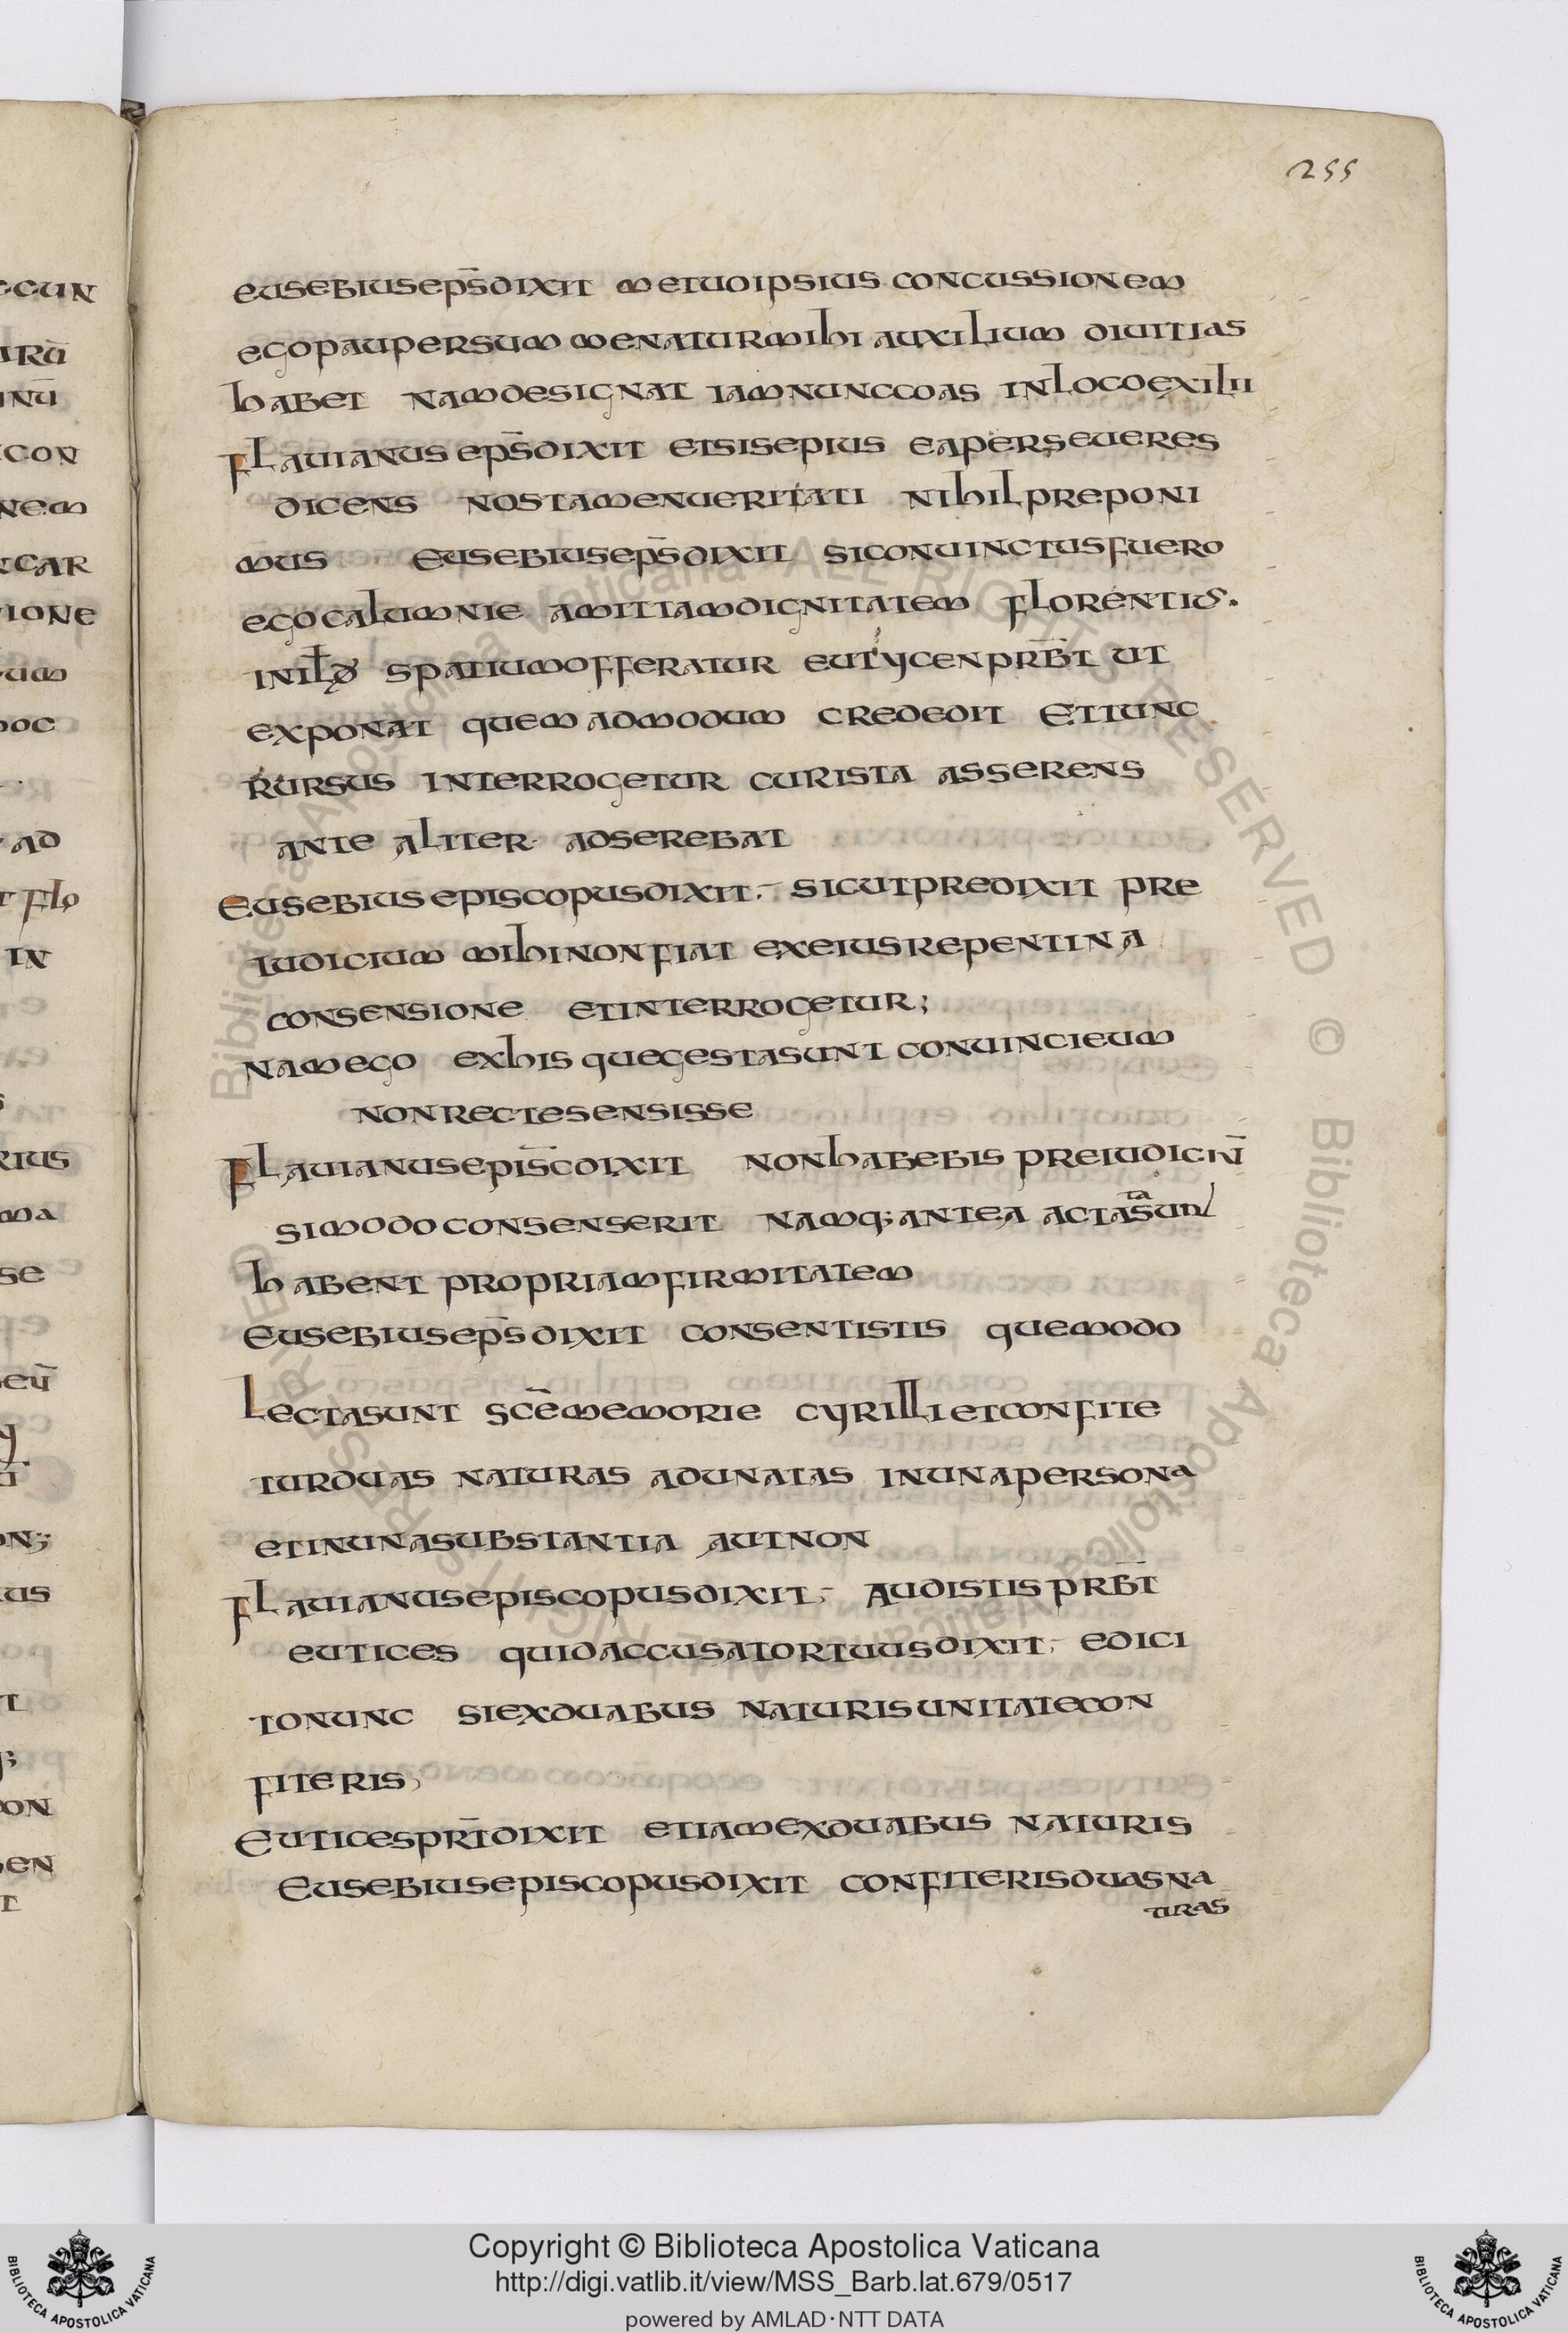 255
eusebius ep̅s dixit metuo ipsius concussionem
ego pauper sum menatur mihi auxilium diuitias
habet nam designat iam nunc coas in loco exilii
flauianus ep̅s dixit et si sepius ea perseueres
dicens nos tamen ueritati nihil preponi
mus eusebius ep̅s dixit si conuinctus fuero
ego calumnie amittam dignitatem florentius.
spatium offeratur eutycen prb̅t ut
exponat quem ad modum crededit et tunc
rursus interrogetur cur ista asserens
ante aliter adserebat
eusebius episcopus dixit. sicut predixit pre
iudicium mihi non fiat ex eius repentina
consensione et interrogetur;
nam ego ex his que gesta sunt conuinci eum
non recte sensisse
flauianus episc̅ dixit non habebis preiudiciu̅
si modo consenserit namq; antea acta sunt
habent propriam firmitatem
eusebius ep̅s dixit consentistis que modo
lecta sunt sc̅e memorie cyrilli et confite
tur duas naturas adunatas in una persona
et in una substantia aut non
flauianus episcopus dixit, audistis prb̅t
eutices quid accusator tuus dixit, edici
to nunc si ex duabus naturis unitate con
fiteris,
eutices pr̅t dixit etiam ex duabus naturis
eusebius episcopus dixit confiteris duas na
turas
Copyright © Biblioteca Apostolica Vaticana
http://digi.vatlib.it/view/MSS_Barb.lat.679/0517
powered by AMLAD·NTT DATA
BIBLIOTECA APOSTOLICA VATICANA
BIBLIOTECA APOSTOLICA VATICANA